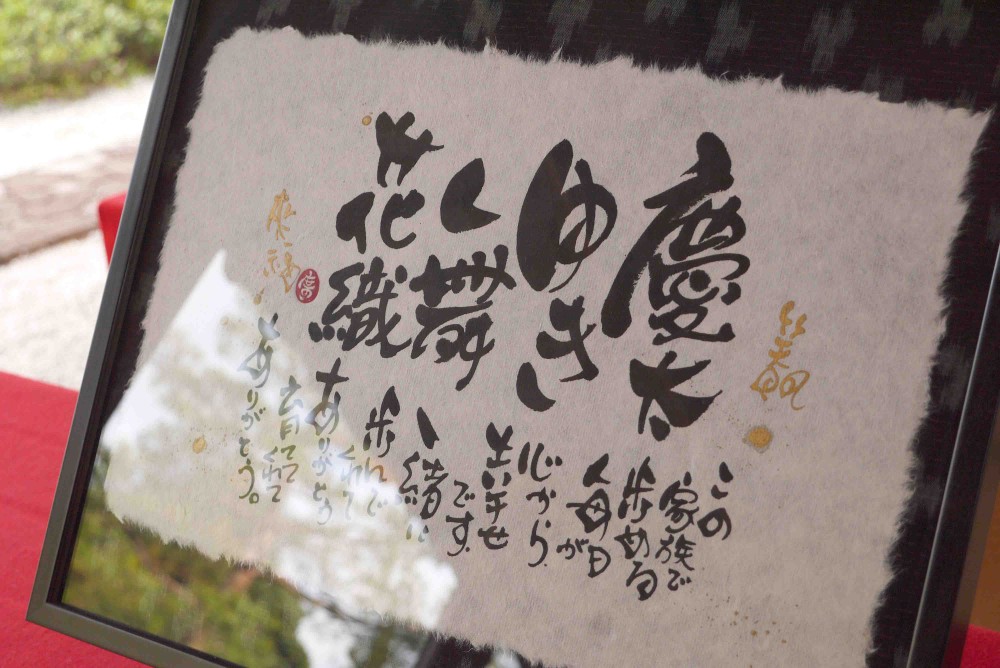 慶太
ゆき
舞
花織
この
家族で
歩める
毎日が
心から
幸せ
です。
一緒に
歩んで
くれて
ありがとう
育てて
くれて
ありがとう。